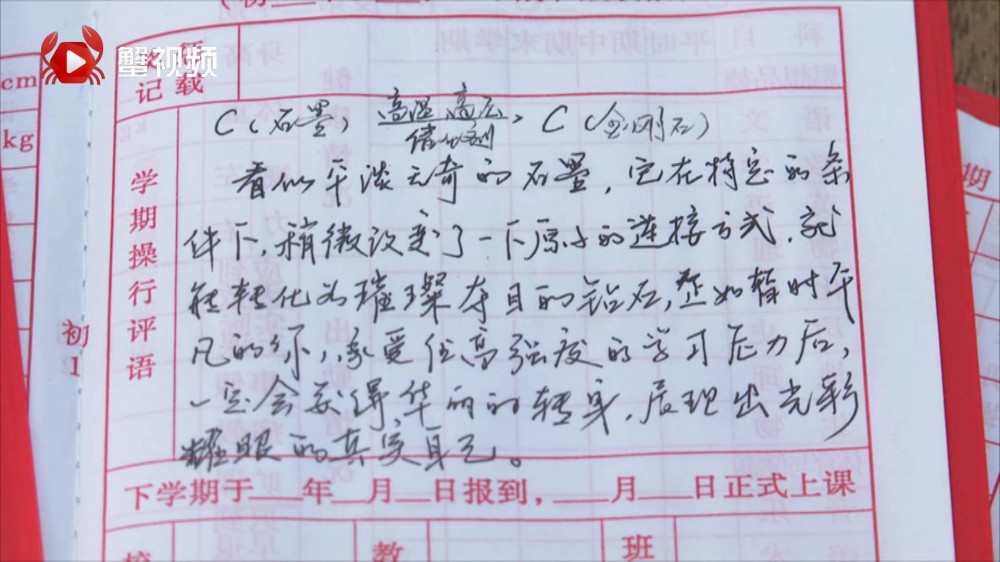 蟹视频
记载
cm
kg
C（石墨） 高温高压 催化剂 C（金刚石）
看似平淡无奇的石墨，它在特定的条
件下，稍微改变了一下原子的连接方式，就
能转化为璀璨夺目的钻石，正如暂时平
凡的你，承受住高强度的学习压力后，
一定会变得华丽的转身，展现出光彩
耀眼的真实自己。
学期操行评语
初1
下学期于___年___月___日报到，___月___日正式上课
教
班
期